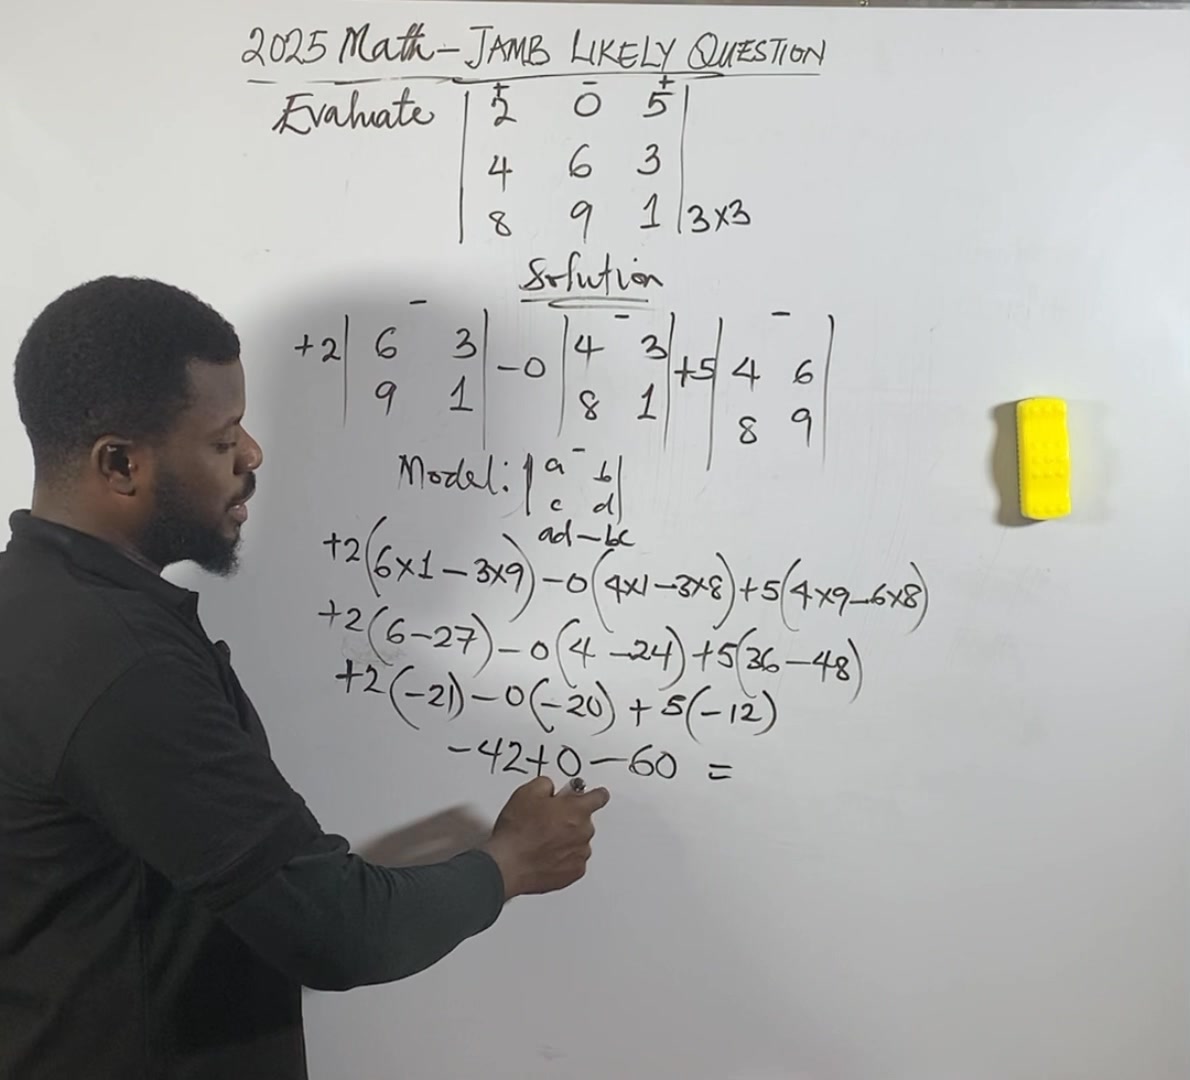 2025 Math – JAMB LIKELY QUESTION
Evaluate | 2 0 5 |
+ − +
| 4 6 3 |
| 8 9 1 | 3×3
Solution
+2 | 6 − 3 | −0 | 4 − 3 | +5 | 4 − 6 |
| 9 1 | | 8 1 | | 8 9 |
Model: | a − b |
| c d |
ad − bc
+2(6×1 − 3×9) − 0(4×1 − 3×8) + 5(4×9 − 6×8)
+2(6 − 27) − 0(4 − 24) + 5(36 − 48)
+2(−21) − 0(−20) + 5(−12)
−42 + 0 − 60 =